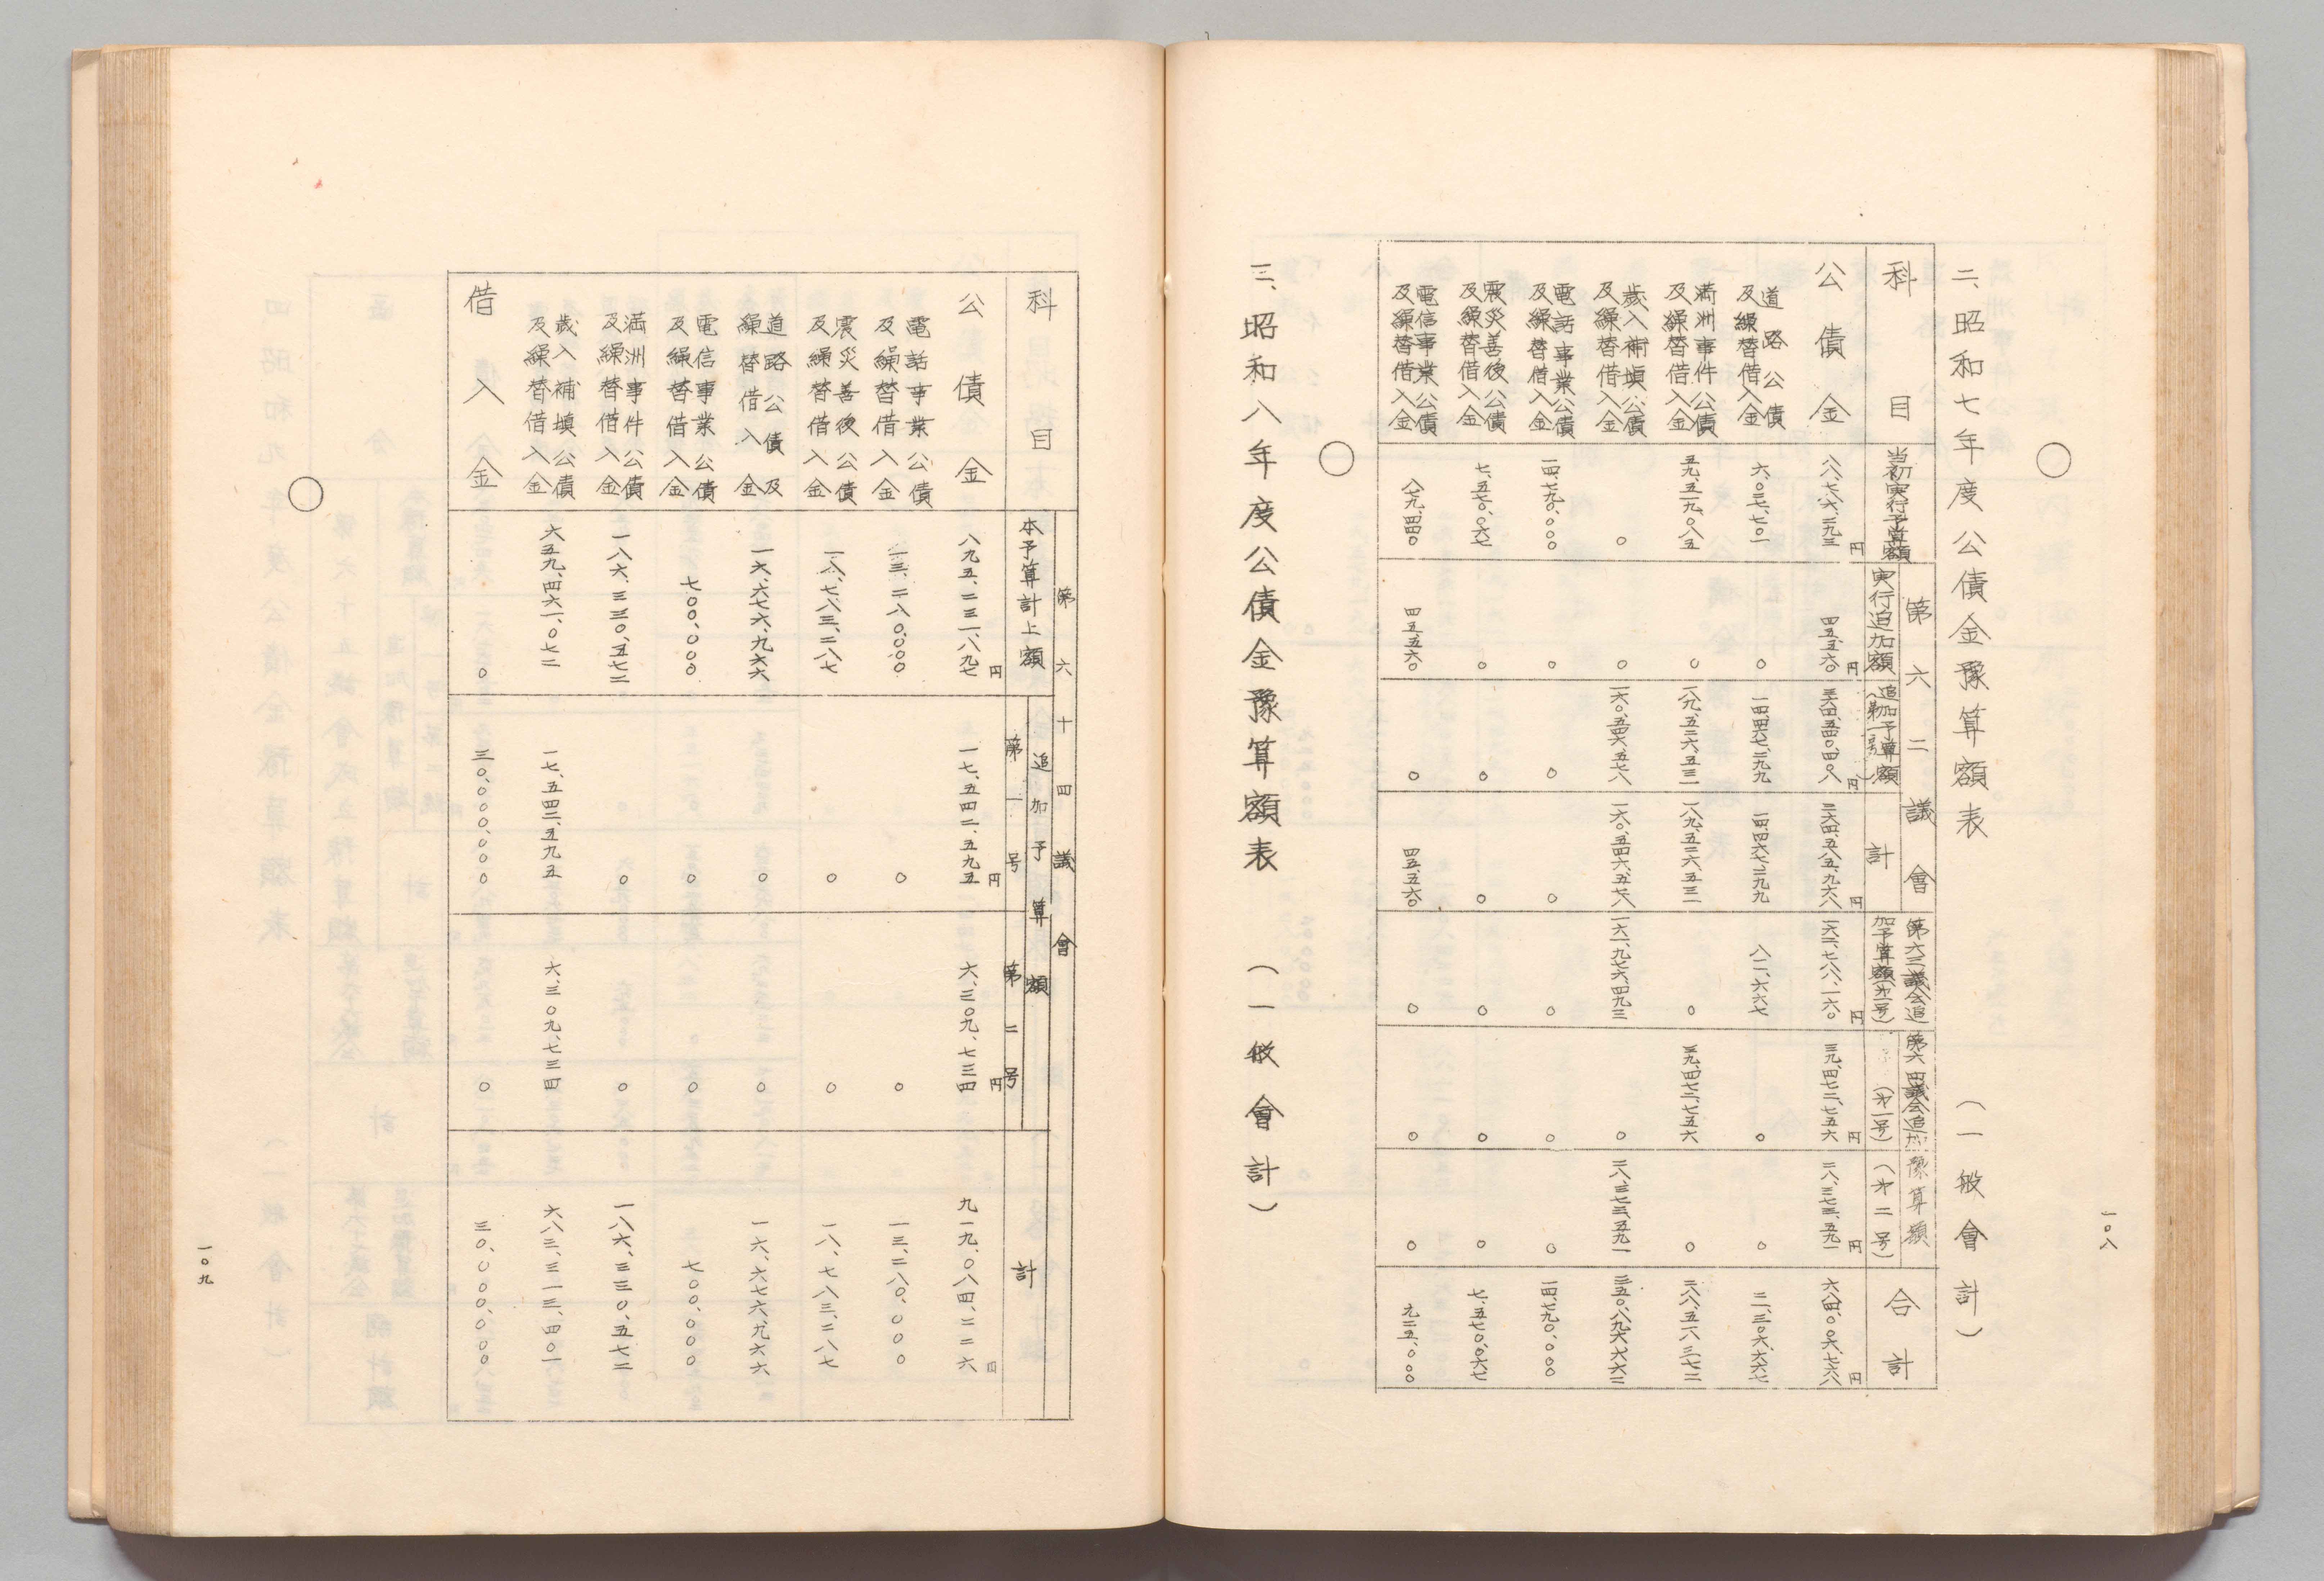 二、昭和七年度公債金豫算額表　（一般會計）
科目
当初実行予算額
第六二議會
実行追加額
追加予算額（第一号）
計
第六三議会追加予算額（第一号）
第六四議会追加豫算額
（才一号）
（才二号）
合計
公債金　八八、七九六、二九三円　四五、五六〇円　三六四、五四〇、四〇八円　三六四、五八五、九六八円　一六二、七八八、一六〇円　三九、四七二、七五六円　二八、三七三、五九一円　六八四、〇一六、七六八円
道路公債及繰替借入金　六、〇三七、七〇一　〇　一四、四六七、二九九　一四、四六七、二九九　八一一、六六七　〇　〇　二一、三一六、六六七
満洲事件公債及繰替借入金　五九、五一九、〇八五　〇　一八九、五二六、五三一　一八九、五二六、五三一　〇　三九、四七二、七五六　〇　二八八、五一八、三七二
歳入補填公債及繰替借入金　〇　〇　一六〇、五四六、五七八　一六〇、五四六、五七八　一六一、九七六、四九三　〇　二八、三七三、五九一　三五〇、八九六、六六二
電話事業公債及繰替借入金　一四、七九〇、〇〇〇　〇　〇　〇　〇　〇　〇　一四、七九〇、〇〇〇
震災善後公債及繰替借入金　七、五七〇、〇六七　〇　〇　〇　〇　〇　〇　七、五七〇、〇六七
電信事業公債及繰替借入金　八七九、四四〇　四五、五六〇　〇　四五、五六〇　〇　〇　〇　九二五、〇〇〇
三、昭和八年度公債金豫算額表　（一般會計）
一〇八
科目
第六十四議會
本予算計上額
追加予算額
第一号
第二号
計
公債金　八九五、二三一、八九七円　一七、五四二、五九五円　六、三〇九、七三四円　九一九、〇八四、二二六円
電話事業公債及繰替借入金　一三、二八〇、〇〇〇　〇　〇　一三、二八〇、〇〇〇
震災善後公債及繰替借入金　一八、七八三、二八七　〇　〇　一八、七八三、二八七
道路公債及繰替借入金　一六、六七六、九六六　〇　〇　一六、六七六、九六六
電信事業公債及繰替借入金　七〇〇、〇〇〇　〇　〇　七〇〇、〇〇〇
満洲事件公債及繰替借入金　一八六、三三〇、五七二　〇　〇　一八六、三三〇、五七二
歳入補填公債及繰替借入金　六五九、四六一、〇七二　一七、五四二、五九五　六、三〇九、七三四　六八三、三一三、四〇一
借入金　〇　三〇、〇〇〇、〇〇〇　〇　三〇、〇〇〇、〇〇〇
一〇九